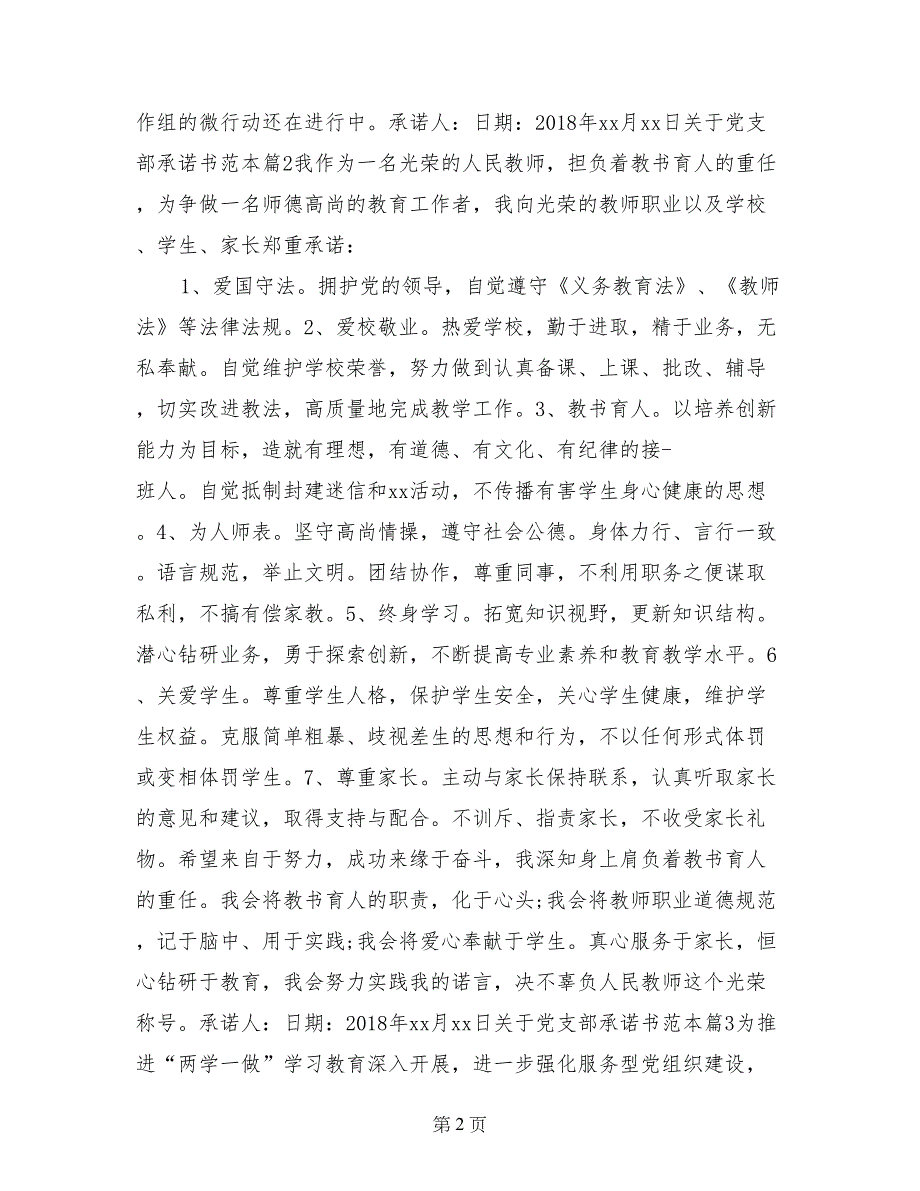 作组的微行动还在进行中。承诺人：日期：2018年xx月xx日关于党支
部承诺书范本篇2我作为一名光荣的人民教师，担负着教书育人的重任
，为争做一名师德高尚的教育工作者，我向光荣的教师职业以及学校
、学生、家长郑重承诺：
1、爱国守法。拥护党的领导，自觉遵守《义务教育法》、《教师
法》等法律法规。2、爱校敬业。热爱学校，勤于进取，精于业务，无
私奉献。自觉维护学校荣誉，努力做到认真备课、上课、批改、辅导
，切实改进教法，高质量地完成教学工作。3、教书育人。以培养创新
能力为目标，造就有理想，有道德、有文化、有纪律的接-
班人。自觉抵制封建迷信和xx活动，不传播有害学生身心健康的思想
。4、为人师表。坚守高尚情操，遵守社会公德。身体力行、言行一致
。语言规范，举止文明。团结协作，尊重同事，不利用职务之便谋取
私利，不搞有偿家教。5、终身学习。拓宽知识视野，更新知识结构。
潜心钻研业务，勇于探索创新，不断提高专业素养和教育教学水平。6
、关爱学生。尊重学生人格，保护学生安全，关心学生健康，维护学
生权益。克服简单粗暴、歧视差生的思想和行为，不以任何形式体罚
或变相体罚学生。7、尊重家长。主动与家长保持联系，认真听取家长
的意见和建议，取得支持与配合。不训斥、指责家长，不收受家长礼
物。希望来自于努力，成功来缘于奋斗，我深知身上肩负着教书育人
的重任。我会将教书育人的职责，化于心头;我会将教师职业道德规范
，记于脑中、用于实践;我会将爱心奉献于学生。真心服务于家长，恒
心钻研于教育，我会努力实践我的诺言，决不辜负人民教师这个光荣
称号。承诺人：日期：2018年xx月xx日关于党支部承诺书范本篇3为推
进“两学一做”学习教育深入开展，进一步强化服务型党组织建设，
第 2 页